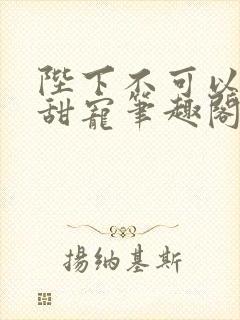 陛下不可以
甜寵筆趣閣
揚納基斯